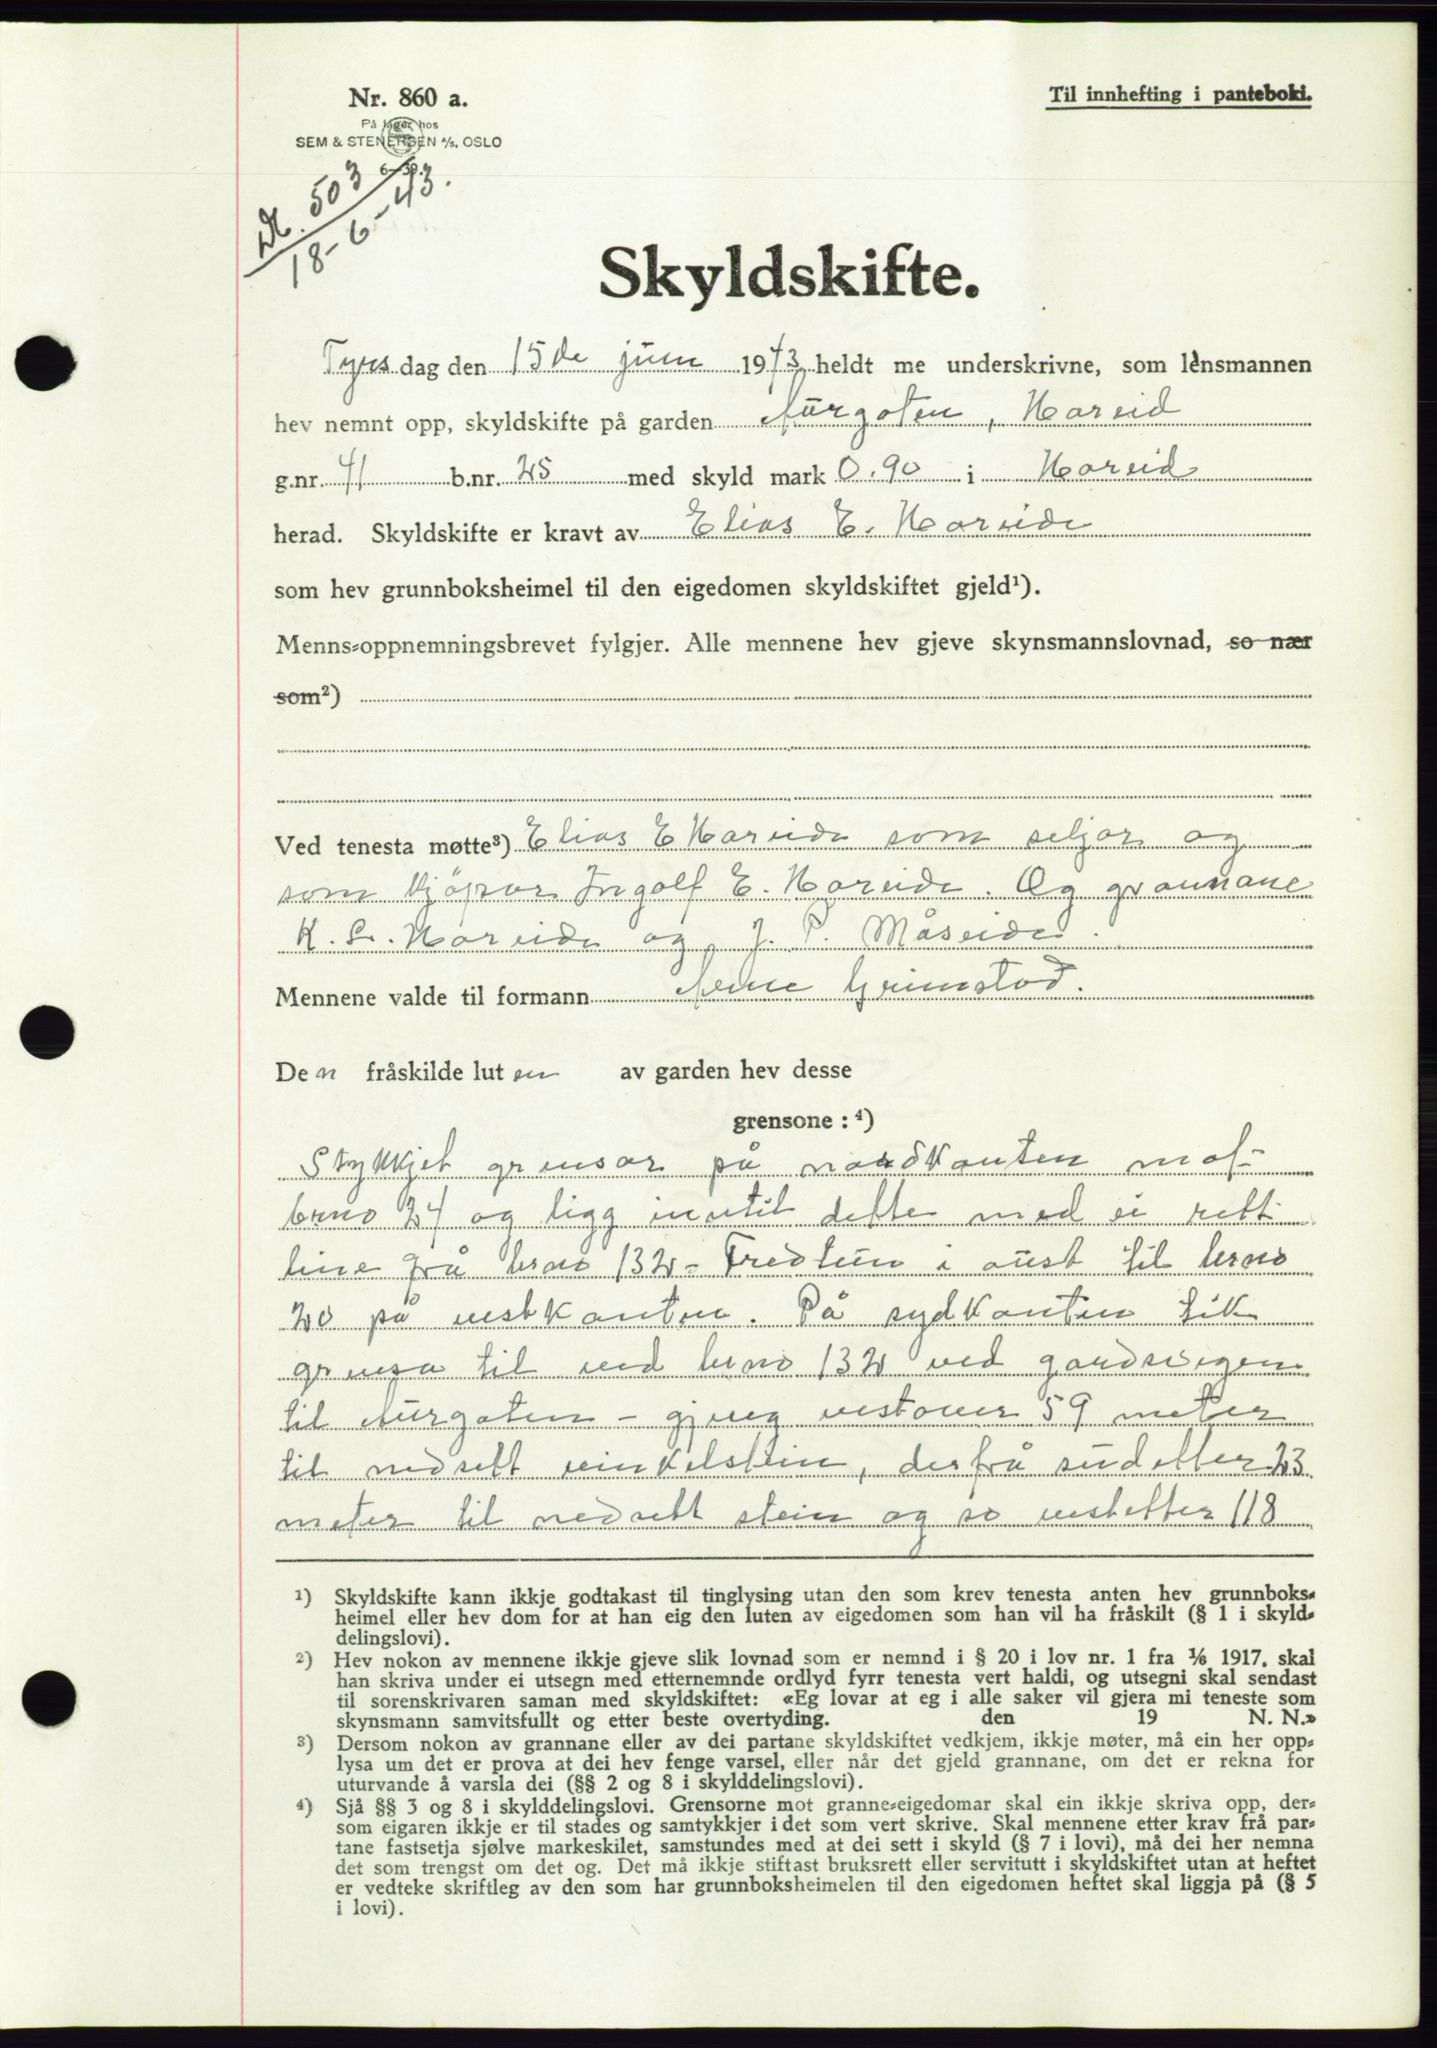 Nr. 860 a.
Til innhefting i panteboki.
På lager hos
SEM & STENERSEN A/S, OSLO
6—39.
Nr. 503
18-6-43.
Skyldskifte.
Tyrsdag den 15de juni 1943 heldt me underskrivne, som lensmannen
hev nemnt opp, skyldskifte på garden Aurgoten, Hareid
g.nr. 41 b.nr. 25 med skyld mark 0.90 i Hareid
herad. Skyldskifte er kravt av Elias E. Hareide
som hev grunnboksheimel til den eigedomen skyldskiftet gjeld¹).
Menns-oppnemningsbrevet fylgjer. Alle mennene hev gjeve skynsmannslovnad, so nær
som²)
Ved tenesta møtte³) Elias E Hareide som seljar og
som kjöpar Ingolf E. Hareide. Og grannane
K. L. Hareide og J. P. Måseide.
Mennene valde til formann Arne Grimstad.
Den fråskilde luten av garden hev desse
grensone: ⁴)
Stykkjet grensar på nordkanten mot
brno 24 og ligg inntil dette med ei rett
line frå brno 132 - Fredtun i aust til brno
20 på vestkanten. På sydkanten tek
grensa til ved brno 132 ved gardsvegen
til Aurgoten - gjeng vestover 59 meter
til nedsett vinkelstein, derfrå sudetter 23
meter til nedsett stein og so vestetter 118
¹) Skyldskifte kann ikkje godtakast til tinglysing utan den som krev tenesta anten hev grunnboks-
heimel eller hev dom for at han eig den luten av eigedomen som han vil ha fråskilt (§ 1 i skyld-
delingslovi).
²) Hev nokon av mennene ikkje gjeve slik lovnad som er nemnd i § 20 i lov nr. 1 fra 1/6 1917, skal
han skriva under ei utsegn med etternemnde ordlyd fyrr tenesta vert haldi, og utsegni skal sendast
til sorenskrivaren saman med skyldskiftet: «Eg lovar at eg i alle saker vil gjera mi teneste som
skynsmann samvitsfullt og etter beste overtyding. den 19 N. N.»
³) Dersom nokon av grannane eller av dei partane skyldskiftet vedkjem, ikkje møter, må ein her opp-
lysa um det er prova at dei hev fenge varsel, eller når det gjeld grannane, om det er rekna for
uturvande å varsla dei (§§ 2 og 8 i skylddelingslovi).
⁴) Sjå §§ 3 og 8 i skylddelingslovi. Grensorne mot granne-eigedomar skal ein ikkje skriva opp, der-
som eigaren ikkje er til stades og samtykkjer i det som vert skrive. Skal mennene etter krav frå par-
tane fastsetja sjølve markeskilet, samstundes med at dei sett i skyld (§ 7 i lovi), må dei her nemna
det som trengst om det og. Det må ikkje stiftast bruksrett eller servitutt i skyldskiftet utan at heftet
er vedteke skriftleg av den som har grunnboksheimelen til den eigedomen heftet skal liggja på (§ 5
i lovi).